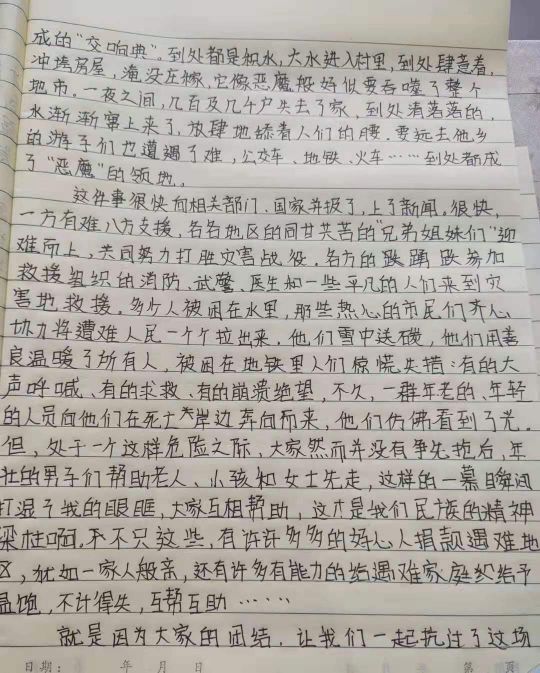 成的“交响典”。到处都是积水,大水进入村里,到处肆意着,
冲垮房屋,淹没庄稼,它像恶魔般好似要吞噬了整个
地市。一夜之间,几百及几千户失去了家,到处清落落的,
水渐渐窜上来了,放肆地搂着人们的腰,要远去他乡
的游子们也遭遇了难,公交车、地铁、火车……到处都成
了“恶魔”的领地。
这件事很快向相关部门、国家并报了,上了新闻。很快,
一方有难八方支援,各各地区的同甘共苦的“兄弟姐妹们”迎
难而上,共同努力打胜灾害战役,各方的踊跃参加
救援组织的消防、武警、医生和一些平凡的人们来到灾
害地救援。多少人被困在水里,那些热心的市民们齐心
协力将遭难人民一个个拉出来,他们雪中送碳,他们用善
良温暖了所有人,被困在地铁里人们惊慌失措:有的大
声呼喊、有的求救、有的崩溃绝望,不久,一群年老的、年轻
的人员向他们在死亡岸边奔向而来,他们仿佛看到了光。
但,处于一个这样危险之际,大家然而并没有争先抢后,年
壮的男子们帮助老人、小孩和女士先走,这样的一幕瞬间
打湿了我的眼眶,大家互相帮助,这才是我们民族的精神
梁柱啊。不只这些,有许许多多的好心人捐款遇难地
区,犹如一家人般亲,还有许多有能力的给遇难家庭给予
温饱,不计得失,互帮互助……
就是因为大家的团结,让我们一起抗过了这场
日期: 年 月 日 第 页